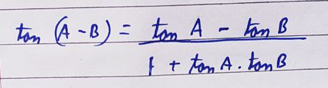 tan (A - B) = tan A - tan B
1 + tan A . tan B